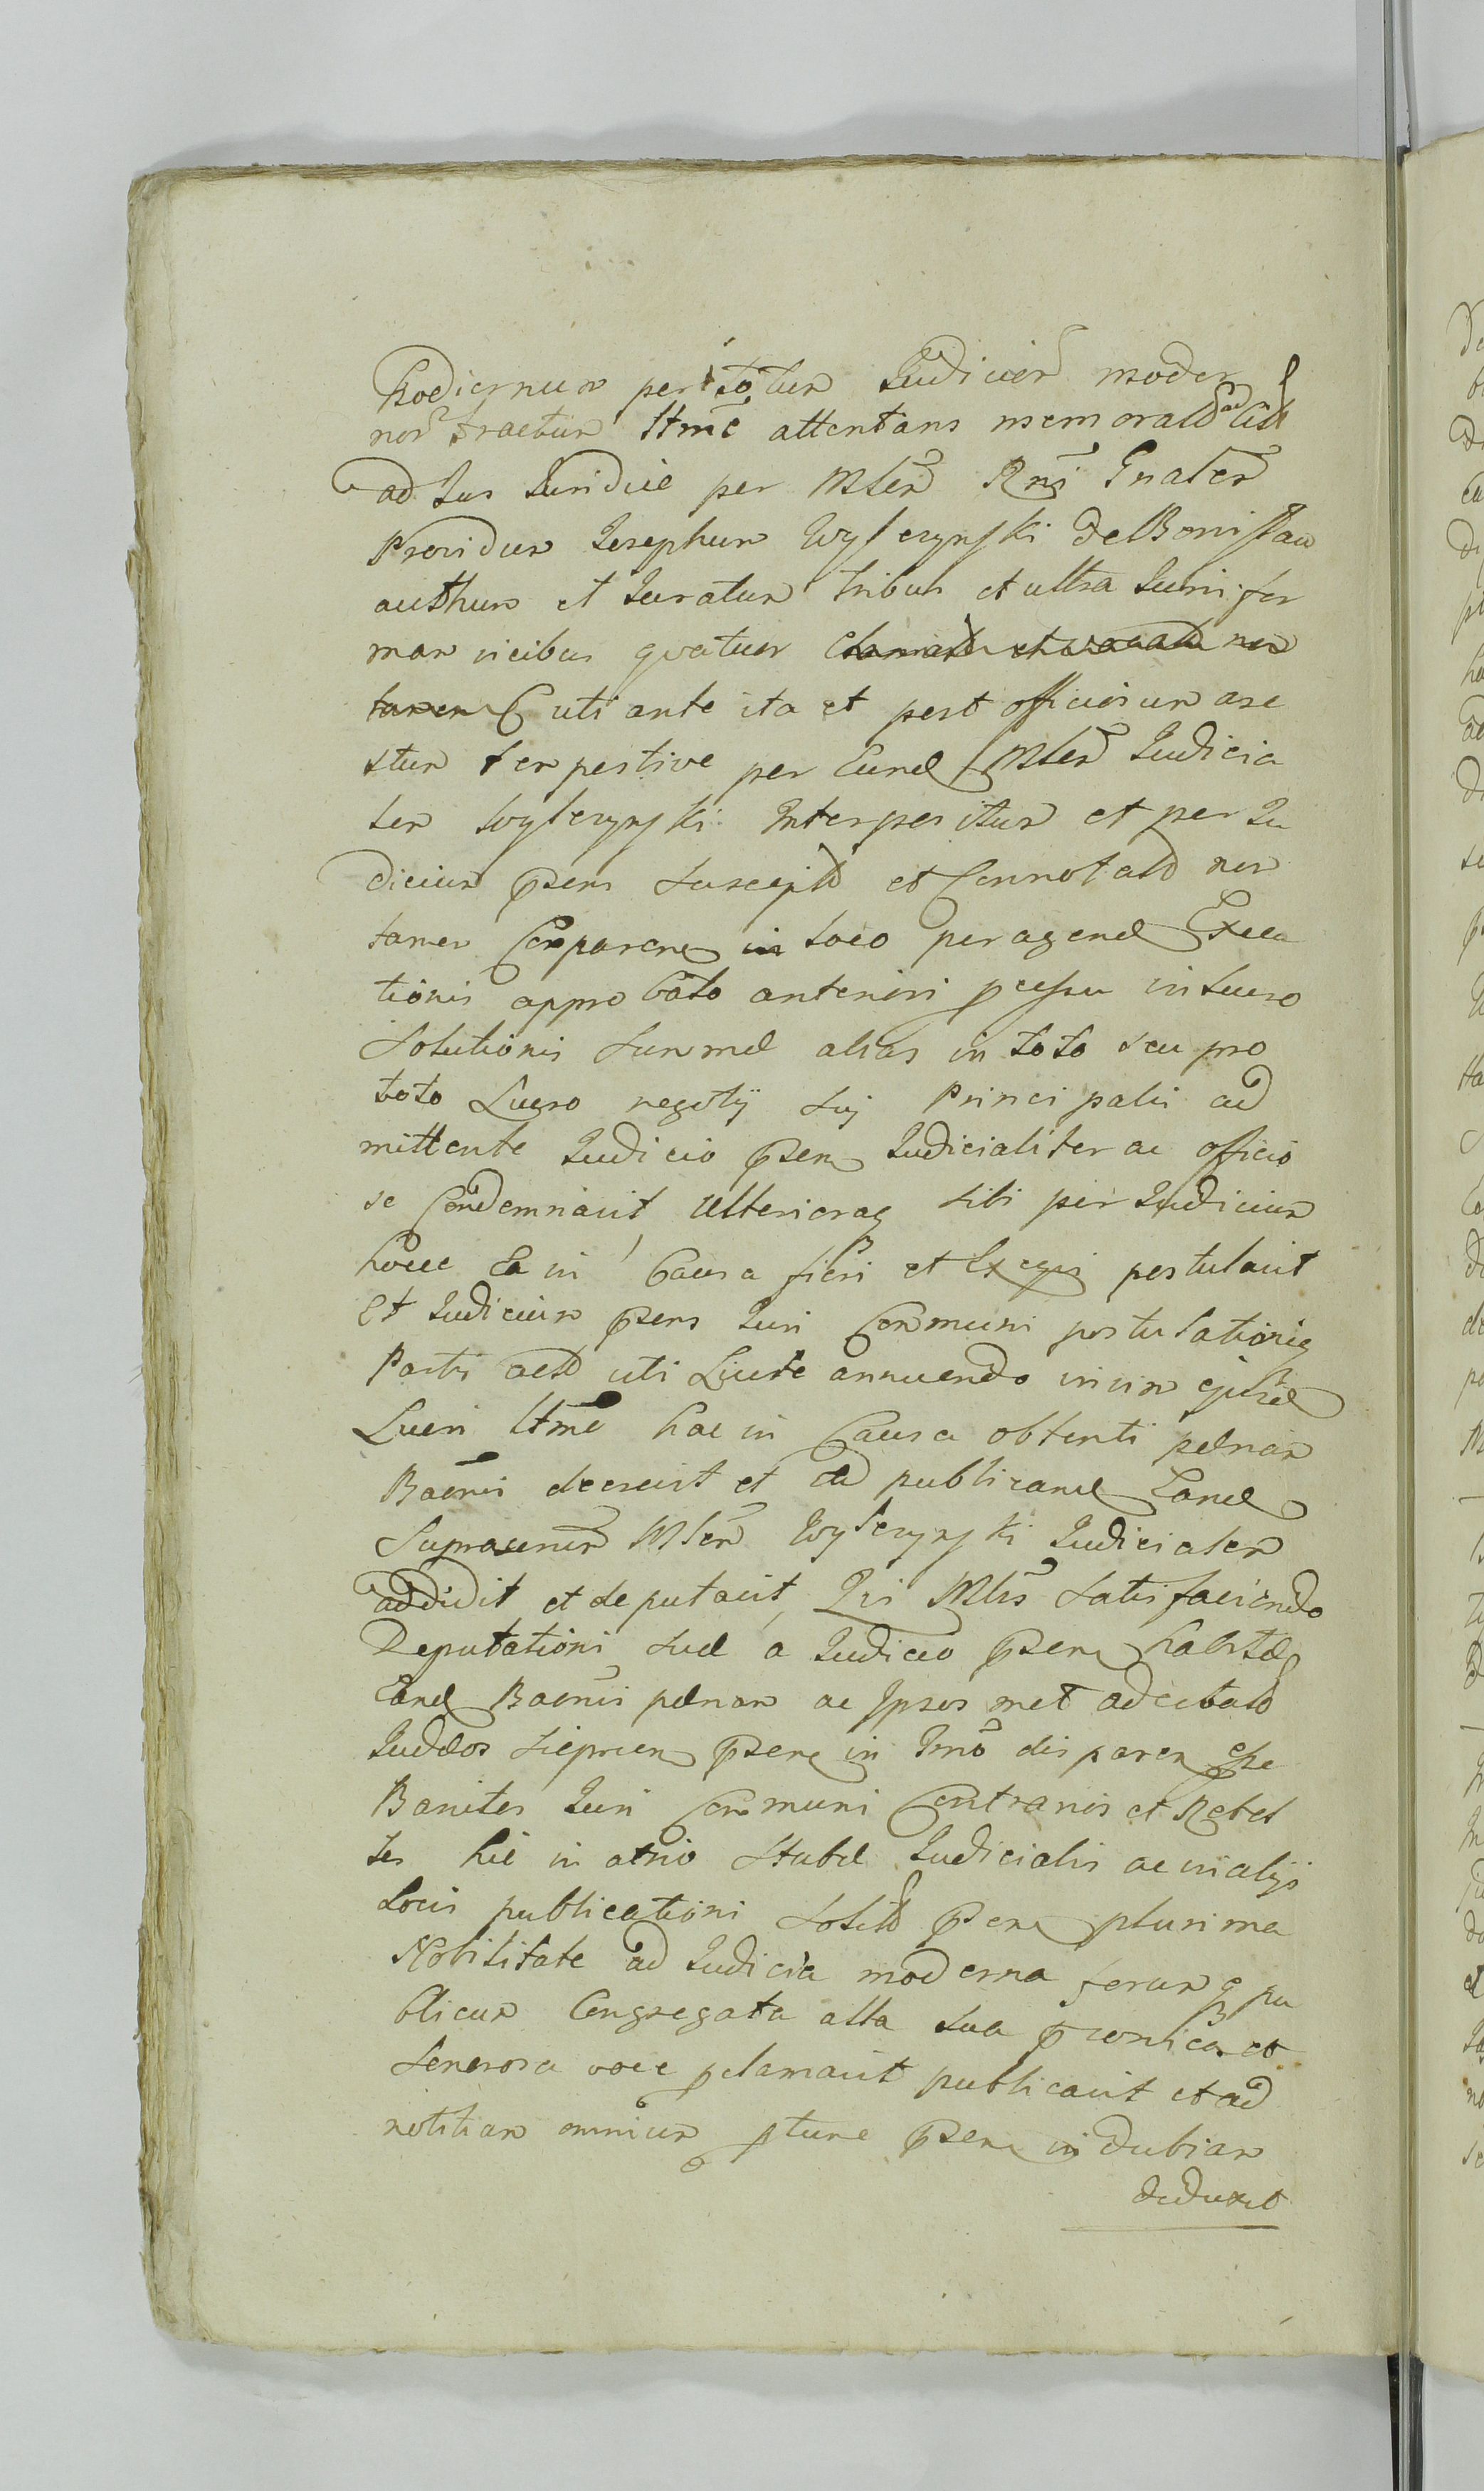 hodiernum per totum Judicior moder
nor tractum ttmē attentans memorato adcit
ad Jus Juridice per Mlem Rni Gnalem
Providum Josephum Wylczynski de Bonis
authum et Juratum tribus et ultra Juri for
mam vicibus quatuor clamato et vocato non
tamen uti ante ita et post officiosum are
stum tempestive per Eund Mlem Judicia
lem Wylczynski Interpositum et per Ju
dicium psens suscepto et Connotato non
tamen Comparen in loco peragend Execu
tionis approbato anteriori pcessu in lucro
Solutionis Summæ alias in toto seu pro
toto Lucro negotij sui Principalis ad
mittente Judicio psen Judicialiter ac officio
se Condemnavit Ulterioraq sibi per Judicium
hocce Ea in Causa fieri et Exequi postulavit
Et Judicium psens Juri Communi postulationiq
Partis act uti Juste annuendo in vim ejusd
Lucri ttmē hac in Causa obtenti pænam
Baonis decrevit et ad publicand Eand
Supravenur Mlem Wylczynski Judicialem
addidit et deputavit, Qui Mlis satisfaciendo
Deputationi suæ a Judicio psen habitæ
Eand Baonis pænam ac Ipsos met adcitato
Judæos psen in Trno disparen esse
Banitos Juri Communi Contrarios et Rebel
les hic in atrio Stubæ Judicialis ac in alijs
Locis publicationi solito psen plurima
Nobilitate ad Judicia moderna forumq pu
blicum Congregata alta sua pconica et
Sonorosa voce pclamavit publicavit et ad
notitiam omnium ptunc psen in dubiam
deduxit